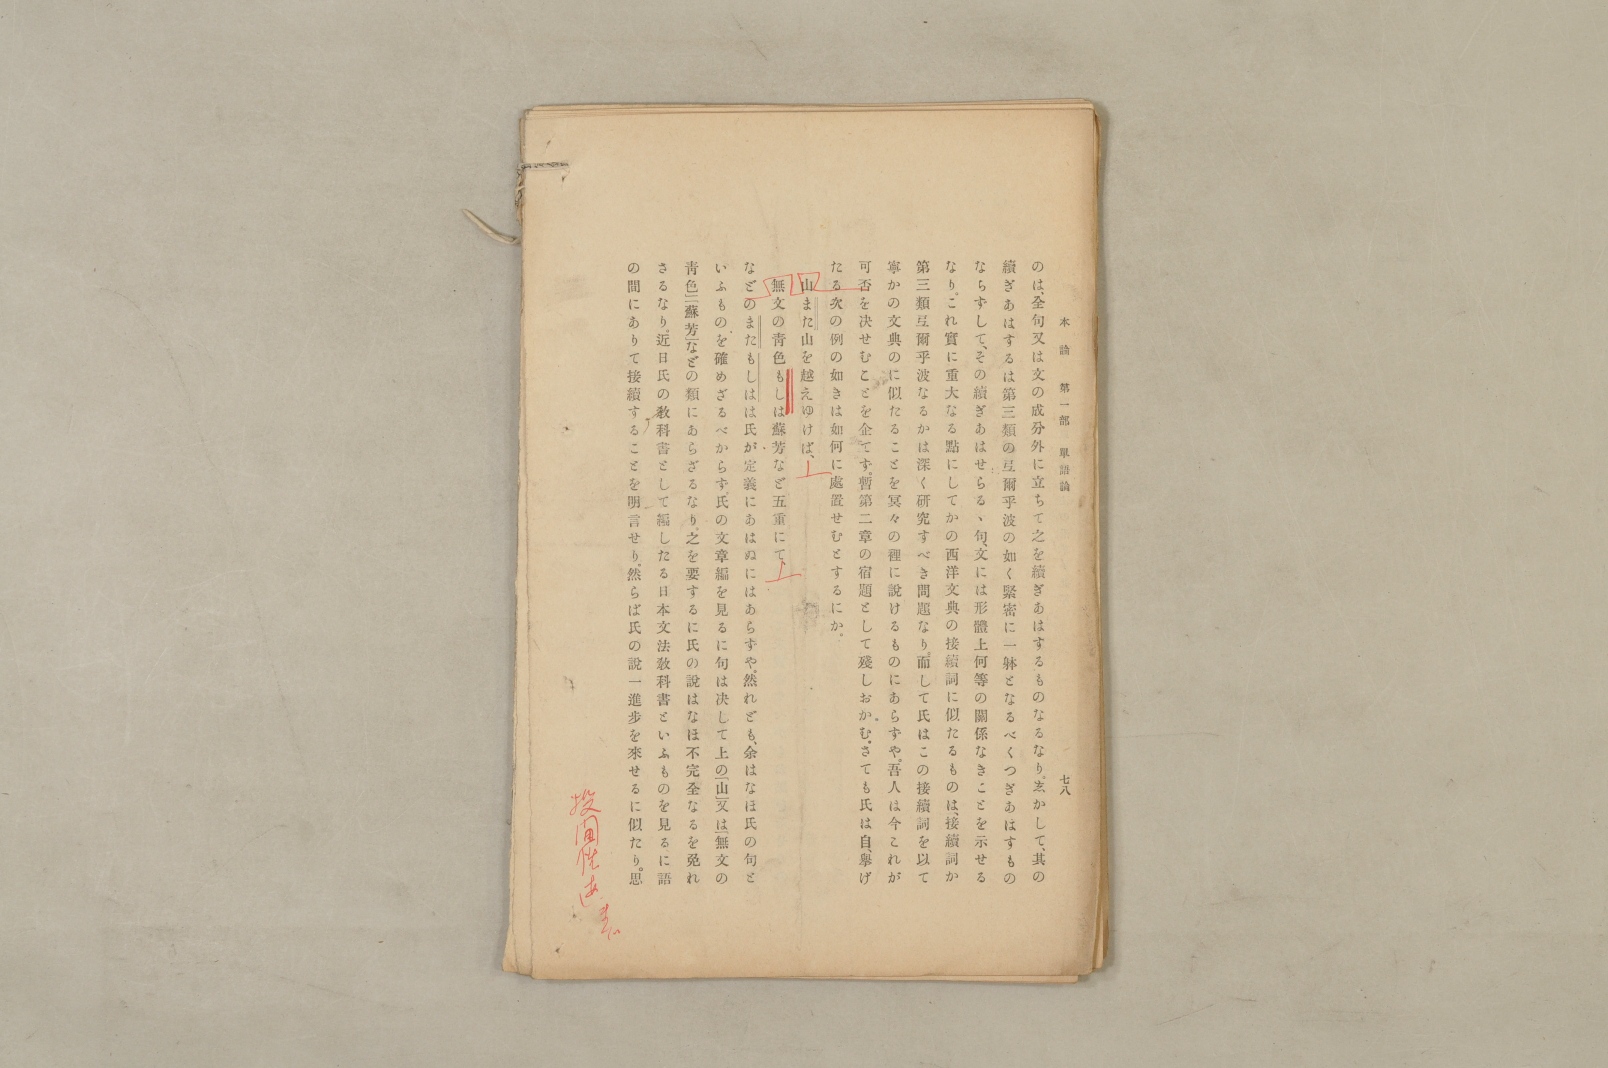 本論　第一部　單語論　七八
のは、全句又は文の成分外に立ちて之を續ぎあはするものなるなり。志かして、其の
續ぎあはするは第三類の弖爾乎波の如く緊密に一躰となるべくつぎあはすもの
ならずして、その續ぎあはせらるゝ句、文には形體上何等の關係なきことを示せる
なり。これ實に重大なる點にしてかの西洋文典の接續詞に似たるものは、接續詞か
第三類弖爾乎波なるかは深く研究すべき問題なり。而して氏はこの接續詞を以て
寧かの文典のに似たることを冥々の裡に說けるものにあらずや。吾人は今これが
可否を决せむことを企てず。暫第二章の宿題として殘しおかむ。さても氏は自、擧げ
たる次の例の如きは如何に處置せむとするにか。
山また山を越えゆけば、
無文の靑色もしは蘇芳など五重にて、
などのまたもしはは氏が定義にあはぬにはあらずや。然れども、余はなほ氏の句と
いふものを確めざるべからず。氏の文章編を見るに句は决して上の「山」又は「無文の
靑色」「蘇芳」などの類にあらざるなり。之を要するに氏の說はなほ不完全なるを免れ
さるなり。近日氏の敎科書として編したる日本文法敎科書といふものを見るに語
の間にありて接續することを明言せり。然らば氏の說一進步を來せるに似たり。思